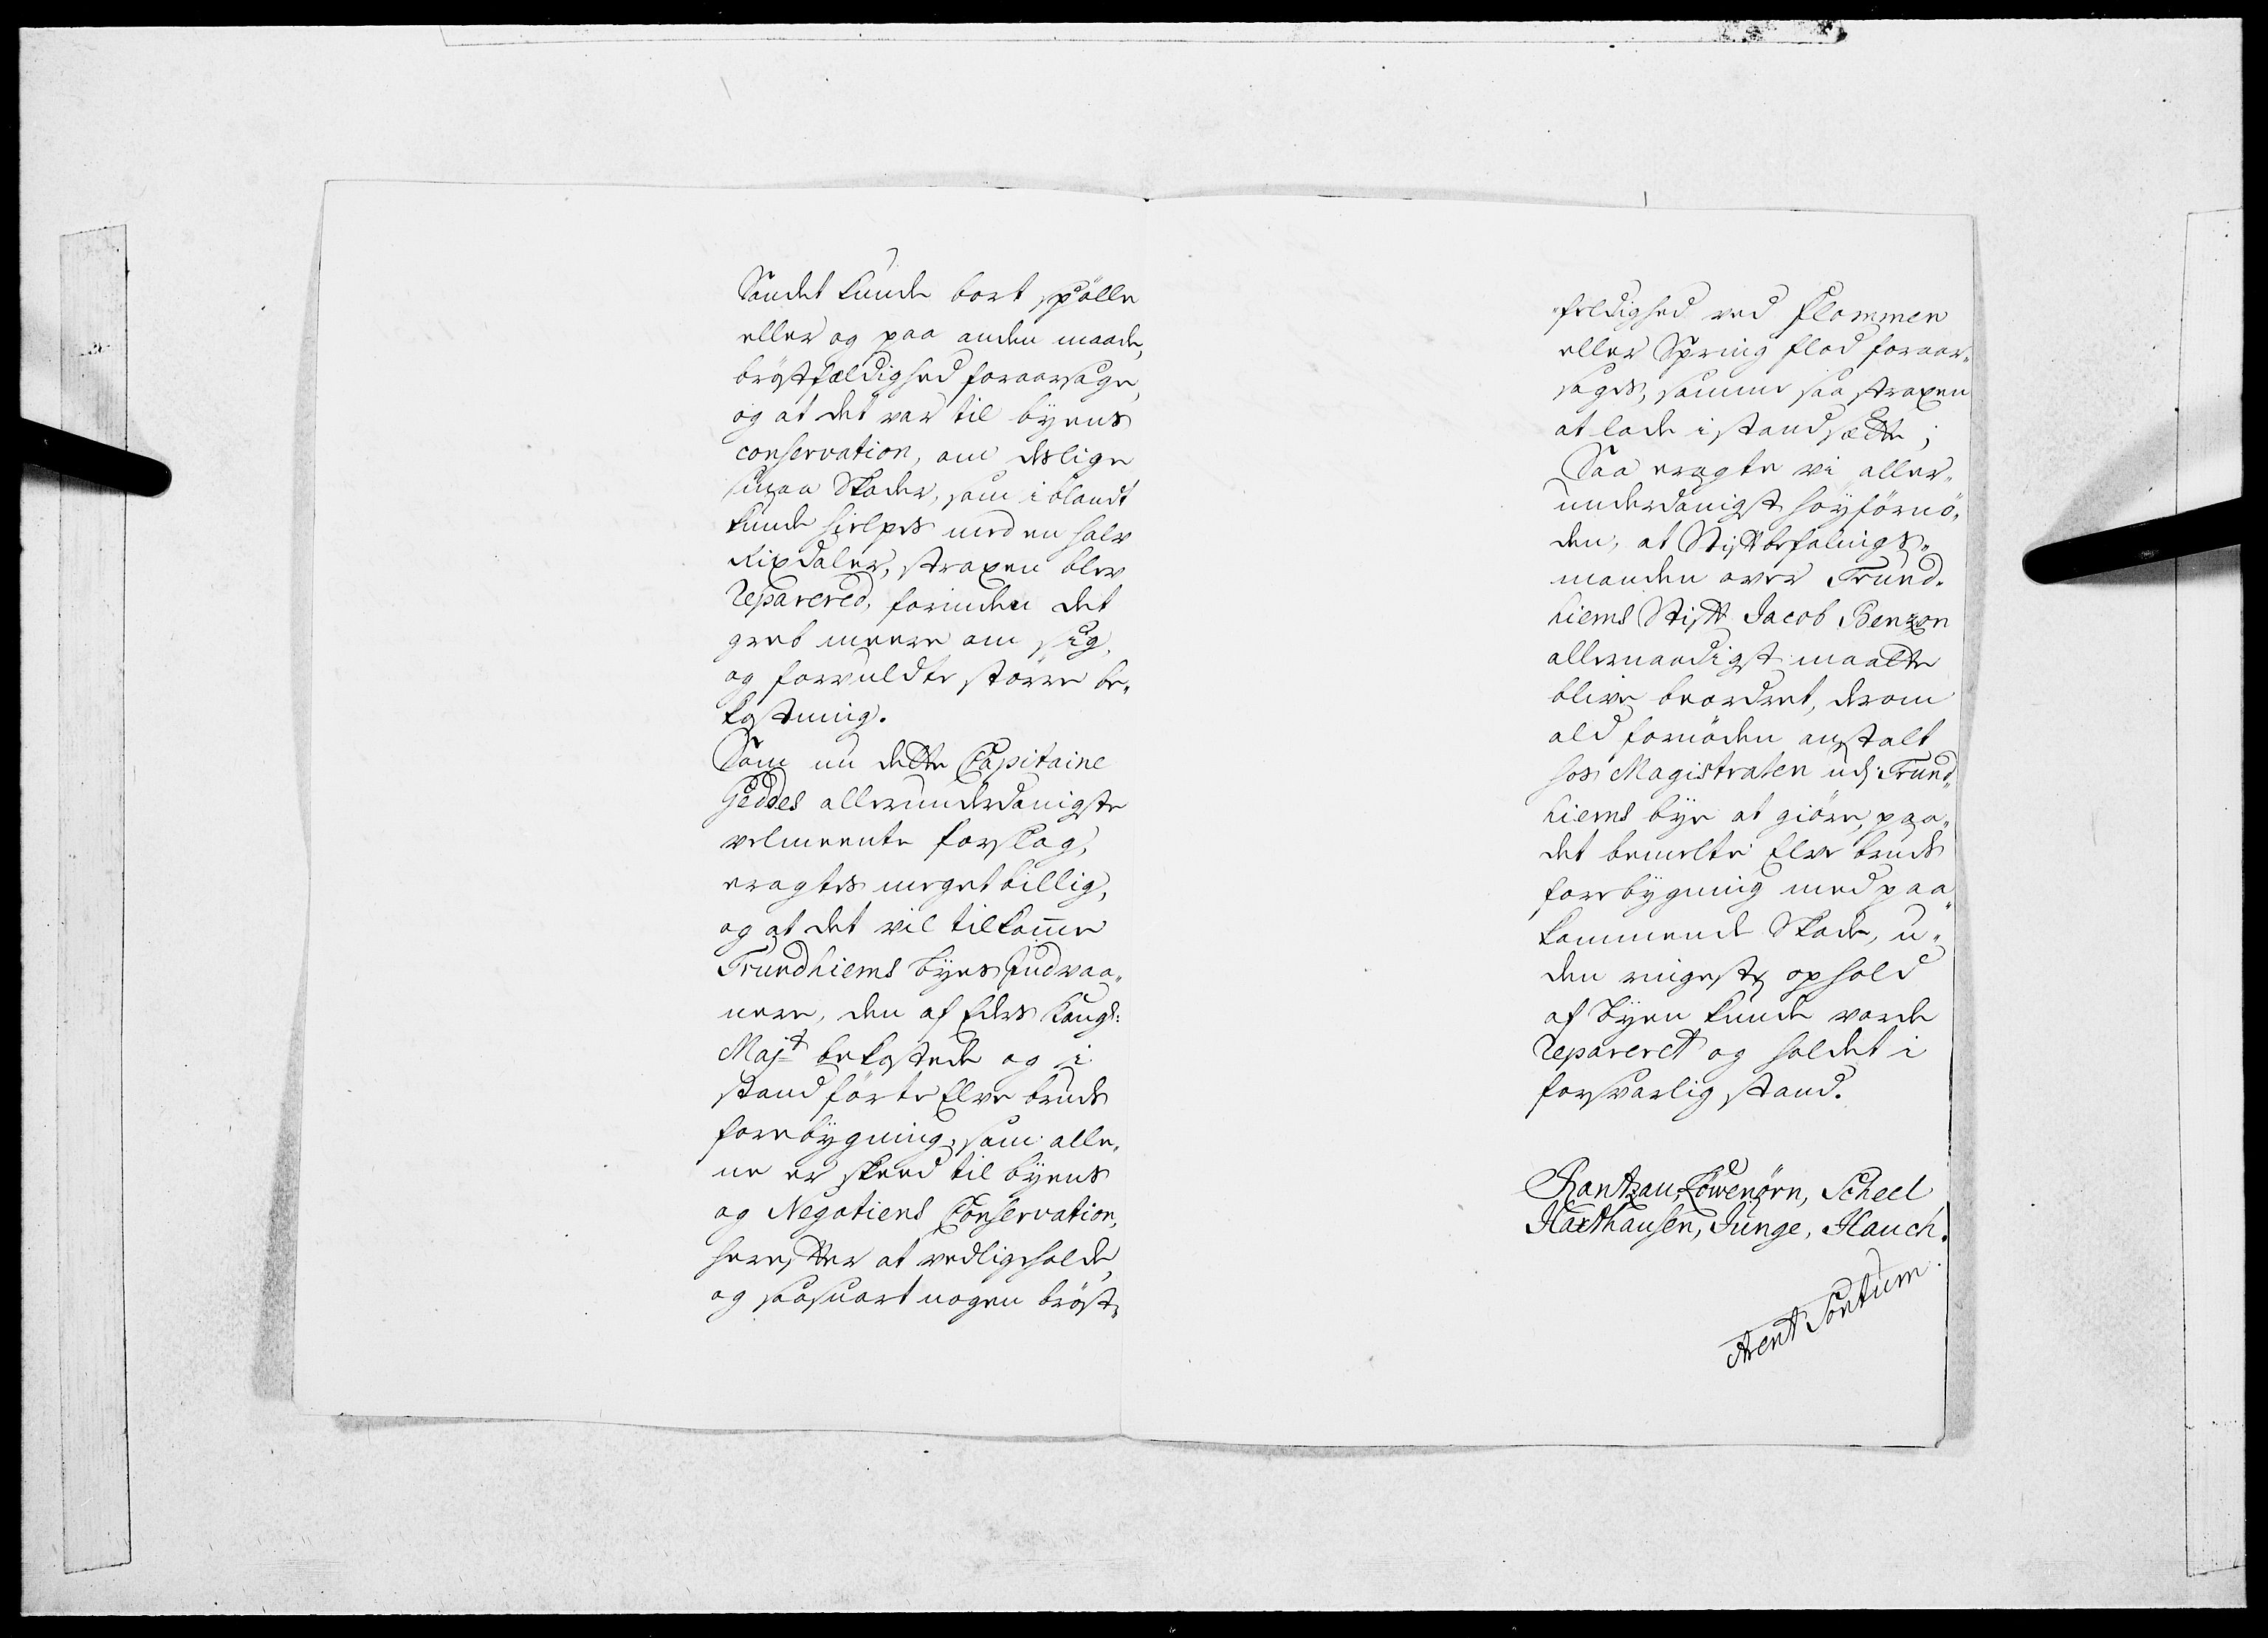 Vandet kunde bort spölle
eller og paa anden maade,
bröstfældighed foraarsage,
og at det var til byens
conservation, om deslige
smaa Skader, som iblandt
kunde hielpes med en halv
Rixdaler, straxen blev
repareret, forinden det
greb meere om sig,
og forvuldte större be„
kostning.
Som nu dette Capitaine
Geddes allerunderdanigste
velmeente forslag,
eragtes meget billig,
og at det vil tilkomme
Trundhiems byes Indvaa„
nere, den af Eders Kongl:
Majt bekostede og i
stand förte Elve bruds
forebygning, som alle„
ne er skeed til byens
og Negotiens Conservation,
herefter at vedligeholde,
og saasnart nogen bröst„
feldighed ved Flommen
eller Spring flod foraar„
sages, samme saa straxen
at lade istandsætte;
Saa eragte vi aller„
underdanigst höyfornö„
den, at Stiftbefalings„
manden over Trund„
hiems Stift Jacob Benzon
allernaadigst maatte
blive beordret, derom
ald fornöden anstalt
hos Magistraten udj Trund„
hiems bye at giöre, paa„
det bemelte Elve bruds
forebygning med paa„
kommende Skade, u„
den ringeste ophold
af Byen kunde vorde
repareret og holdet i
forsvarlig stand.
Rantzau, Löwenörn, Scheel
Haxthausen, Junge, Hauch.
Arent Sontum.